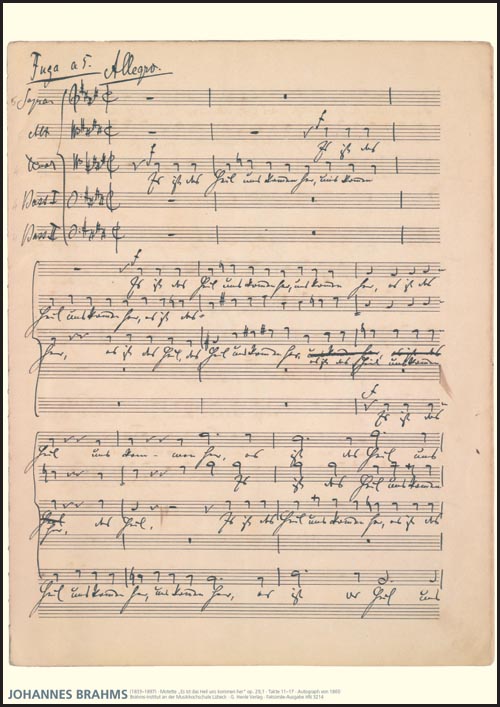 Fuga a 5. Allegro.
Sopran
Alt
Es ist das
Tenor
Es ist das Heil uns kommen her, uns kommen
Bass I
Bass II
Es ist das Heil uns kommen her, uns kommen her, es ist das
Heil uns kommen her, es ist das
her, es ist das Heil, das Heil uns kommen her, es ist das Heil uns kommen
Es ist das
Heil uns kom - men her, es ist das Heil uns
Es ist das Heil uns kommen
her, das Heil, Es ist das Heil uns kommen her, es ist das
Heil uns kommen her, uns kommen her, es ist das Heil uns
JOHANNES BRAHMS (1833–1897) · Motette „Es ist das Heil uns kommen her" op. 29,1 · Takte 11–17 · Autograph von 1860
Brahms-Institut an der Musikhochschule Lübeck · G. Henle Verlag · Faksimile-Ausgabe HN 3214